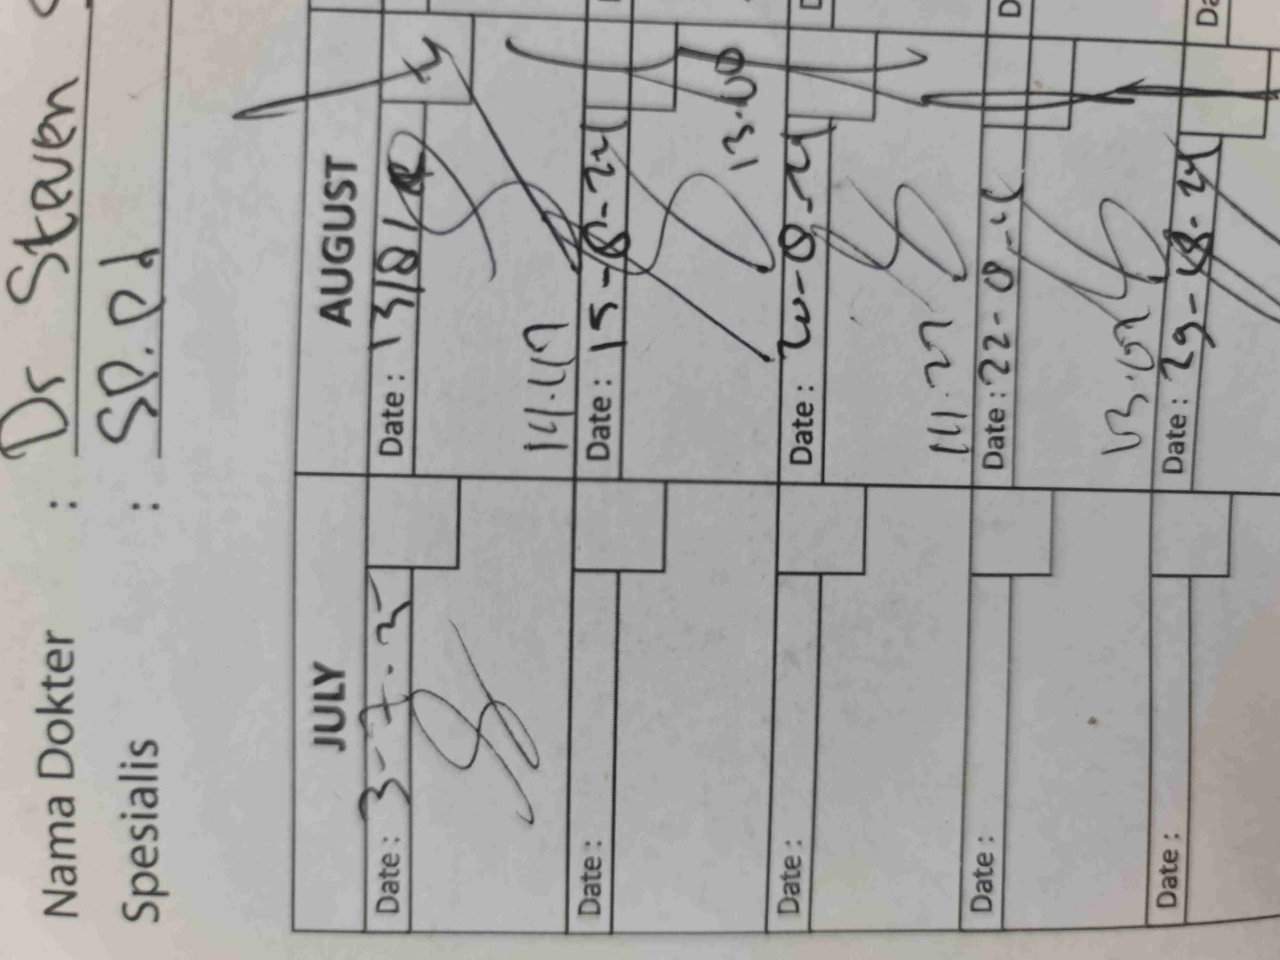 Nama Dokter : Dr Steven S
Spesialis : SP.Pd
JULY AUGUST
Date : 3-7-25 Date : 13/8/24
14.47
Date : Date : 15-8-24
13.00
Date : Date : 20-8-24
14.27
Date : Date : 22-08-24
13.09
Date : Date : 29-8-24